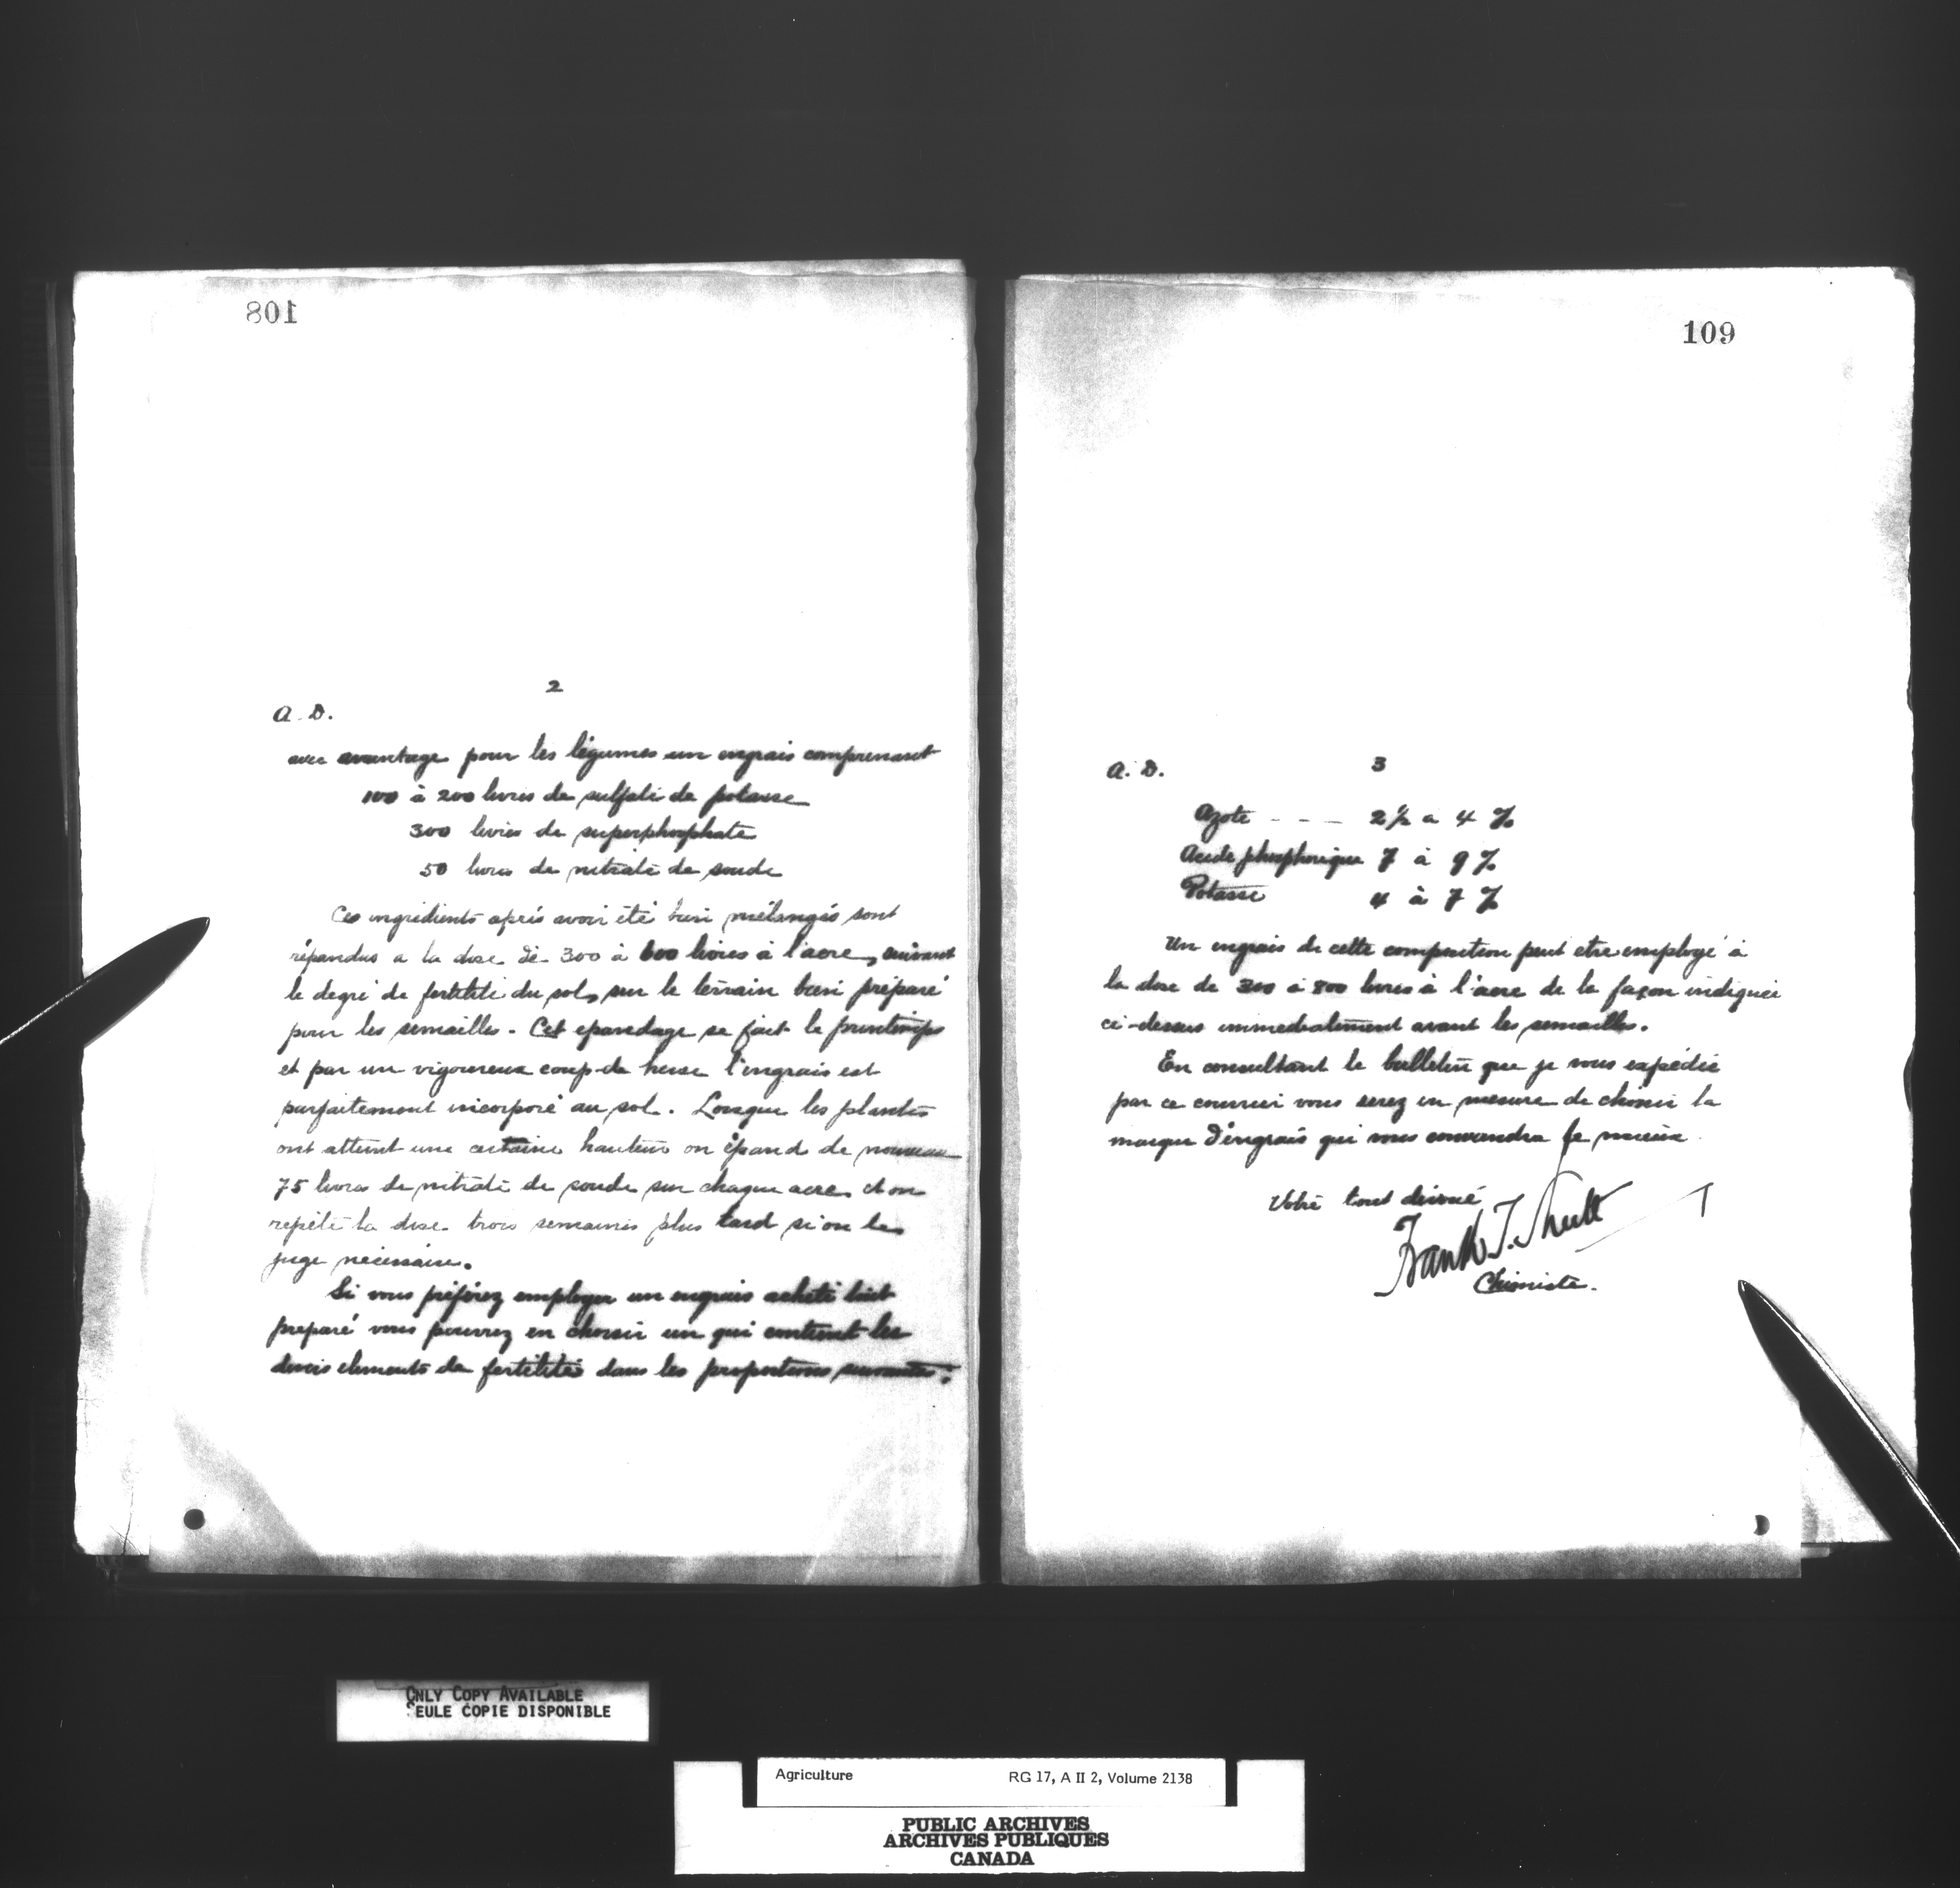 108
2
A. D.
avec avantage pour les légumes un engrais comprenant
100 à 200 livres de sulfate de potasse
300 livres de superphosphate
50 livres de nitrate de soude
Ces ingrédients après avoir été bien mélangés sont
répandus a la dose de 300 à 600 livres à l'acre, suivant
le degré de fertilité du sol, sur le terrain bien préparé
pour les semailles. Cet epandage se fait le printemps
et par un vigoureux coup de herse l'engrais est
parfaitement incorporé au sol. Lorsque les plantes
ont atteint une certaine hauteur on épand de nouveau
75 livres de nitrate de soude sur chaque acre et on
repète la dose trois semaines plus tard si on le
juge nécessaire.
Si vous préférez employer un engrais acheté tout
preparé vous pourrez en choisir un qui contient les
divers elements de fertilité dans les proportions suivantes:
109
A. D.
3
Azote - - - 2½ a 4 %
Acide phosphorique 7 à 9 %
Potasse 4 à 7 %
Un engrais de cette composition peut etre employé à
la dose de 300 à 800 livres à l'acre de la façon indiquée
ci-dessus immediatement avant les semailles.
En consultant le bulletin que je vous expédie
par ce courrier vous serez en mesure de choisir la
marque d'engrais qui vous conviendra le mieux.
Votre tout devoué
Frank T. Shutt
Chimiste.
ONLY COPY AVAILABLE
SEULE COPIE DISPONIBLE
Agriculture RG 17, A II 2, Volume 2138
PUBLIC ARCHIVES
ARCHIVES PUBLIQUES
CANADA